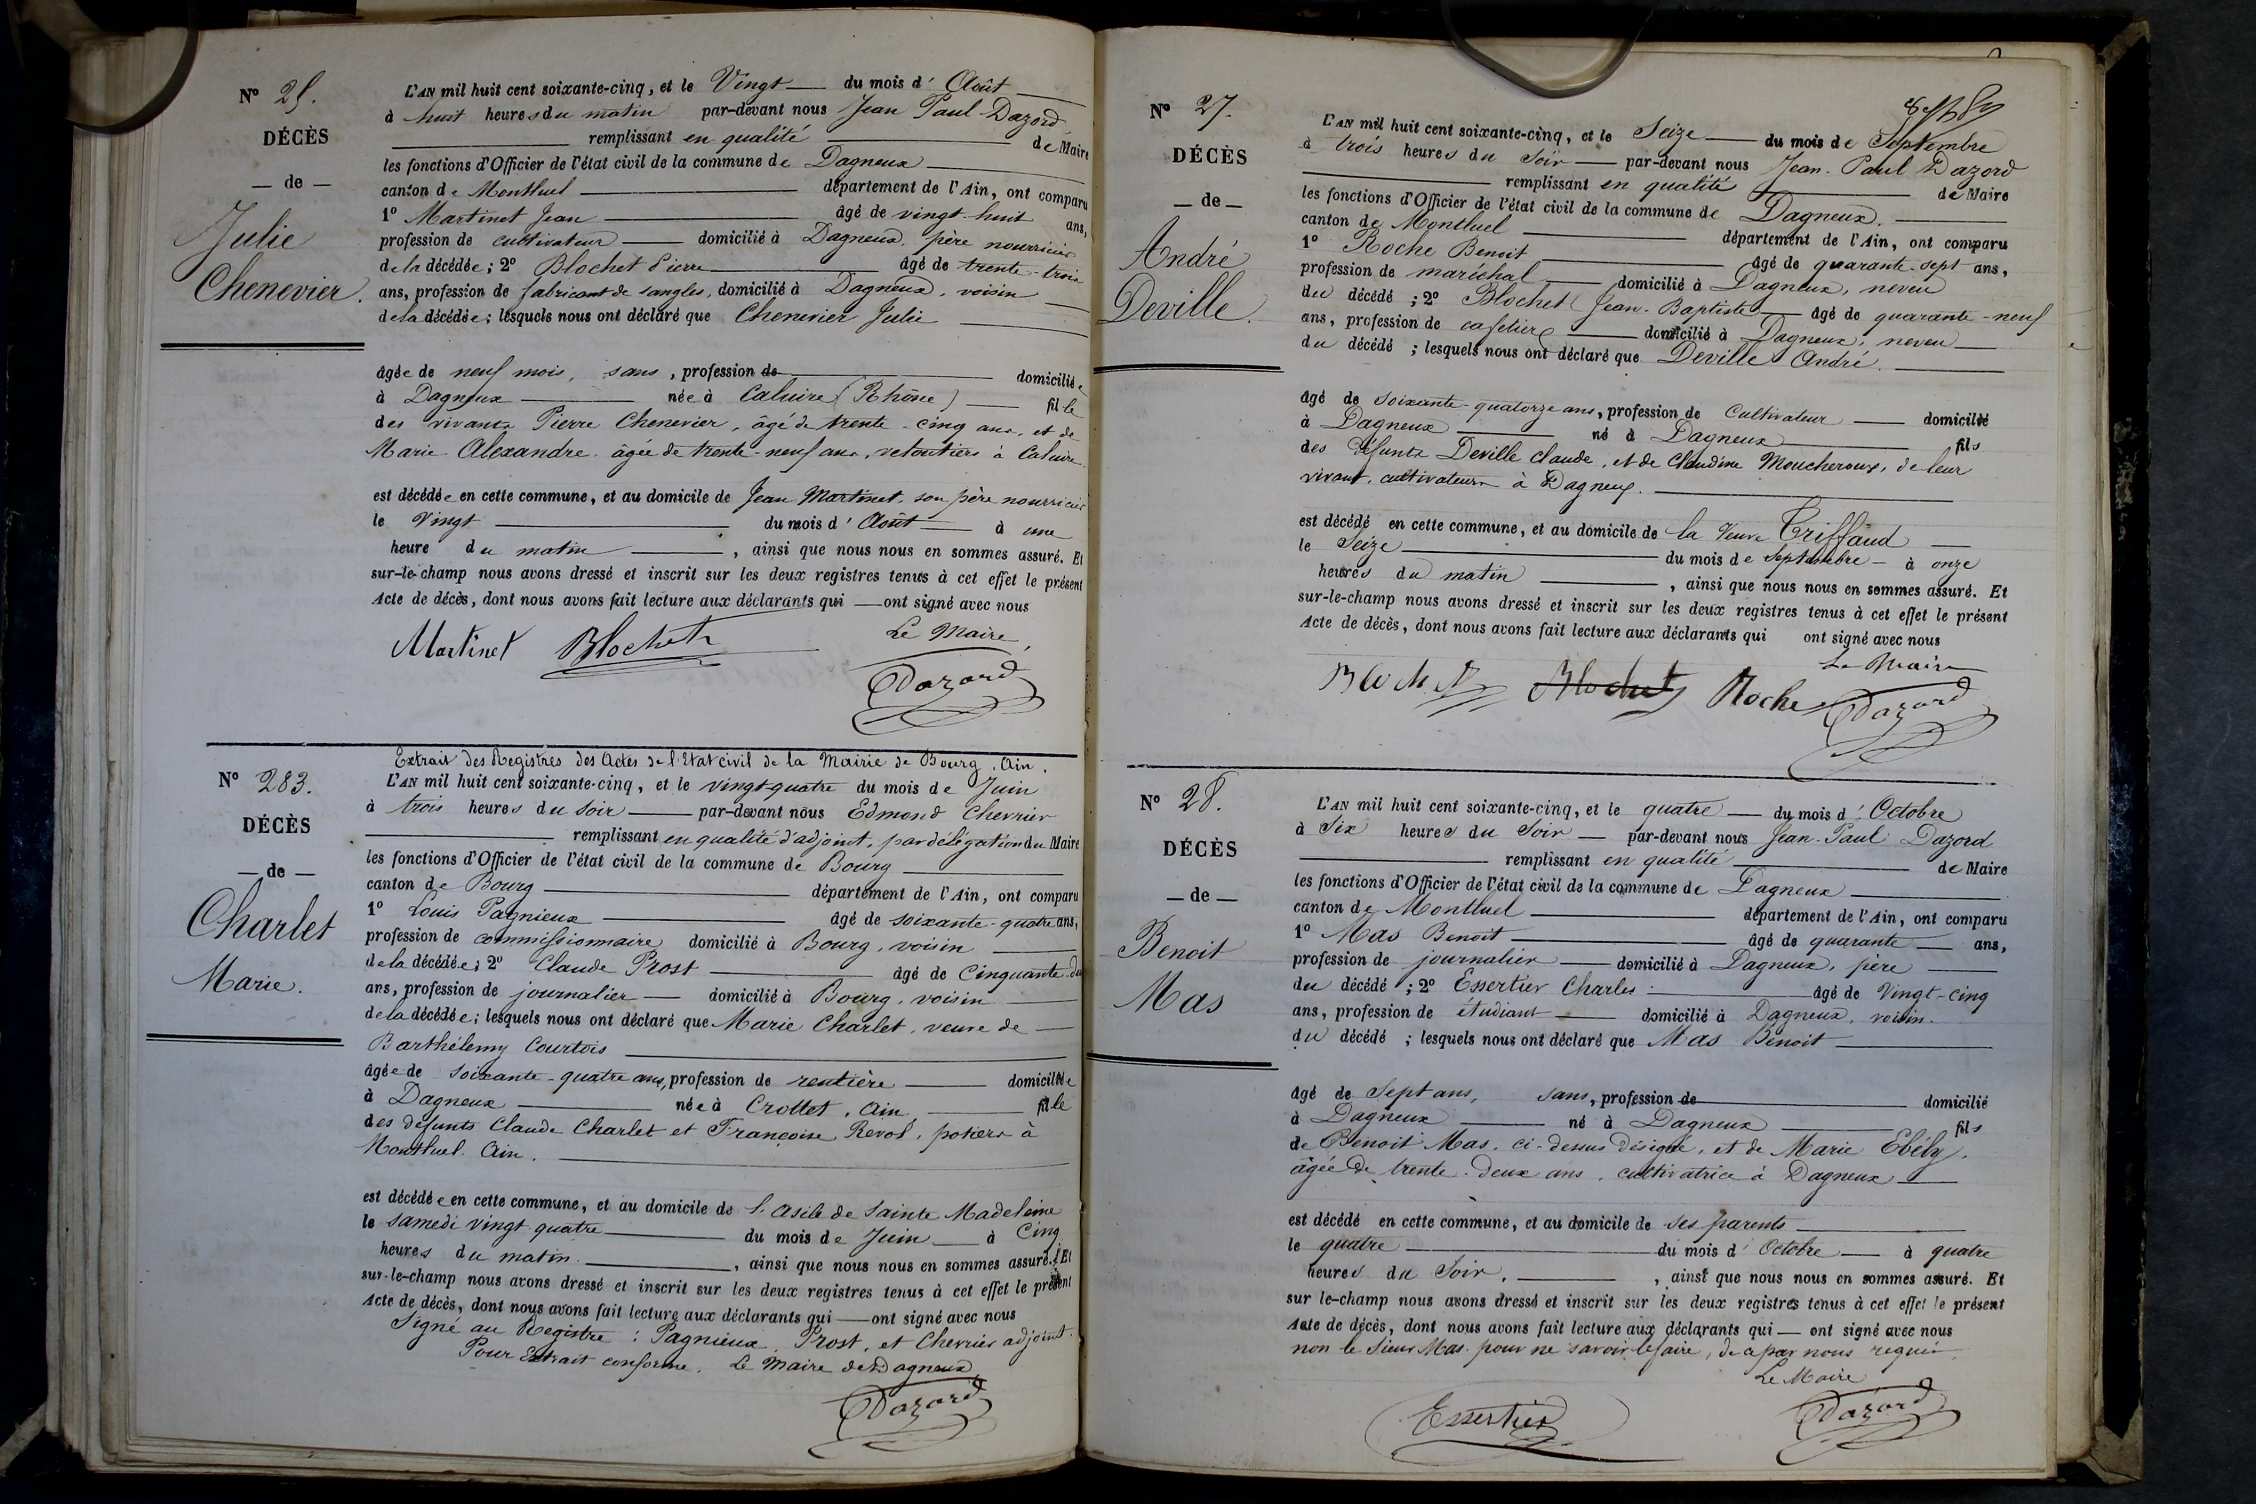 N° 25.
DÉCÈS
— de —
Julie
Chenevier.
L'AN mil huit cent soixante-cinq, et le Vingt du mois d' Août
à huit heures du matin par-devant nous Jean Paul Dazord
remplissant en qualité de Maire
les fonctions d'Officier de l'état civil de la commune de Dagneux
canton de Montluel département de l'Ain, ont comparu
1° Martinet Jean âgé de vingt-huit ans,
profession de cultivateur domicilié à Dagneux, père nourricier
de la décédée; 2° Blochet Pierre âgé de trente-trois
ans, profession de fabricant de sangles, domicilié à Dagneux, voisin
de la décédée; lesquels nous ont déclaré que Chenevier Julie
âgée de neuf mois, sans, profession de domiciliée
à Dagneux née à Caluire (Rhône) fille
des vivants Pierre Chenevier, âgé de trente-cinq ans, et de
Marie Alexandre âgée de trente-neuf ans, veloutiers à Caluire.
est décédée en cette commune, et au domicile de Jean Martinet, son père nourricier
le Vingt du mois d' Août à une
heure du matin, ainsi que nous nous en sommes assuré. Et
sur-le-champ nous avons dressé et inscrit sur les deux registres tenus à cet effet le présent
Acte de décès, dont nous avons fait lecture aux déclarants qui ont signé avec nous
Le Maire
Martinet Blochet
Dazord
Extrait des Registres des Actes de l'Etat civil de la Mairie de Bourg, Ain.
N° 283.
DÉCÈS
— de —
Charlet
Marie.
L'AN mil huit cent soixante-cinq, et le vingt-quatre du mois de Juin
à trois heures du soir par-devant nous Edmond Chevrier
remplissant en qualité d'adjoint, par délégation du Maire
les fonctions d'Officier de l'état civil de la commune de Bourg
canton de Bourg département de l'Ain, ont comparu
1° Louis Pagnieux âgé de soixante-quatre ans,
profession de commissionnaire domicilié à Bourg, voisin
de la décédée; 2° Claude Prost âgé de Cinquante-du
ans, profession de journalier domicilié à Bourg, voisin
de la décédée; lesquels nous ont déclaré que Marie Charlet, veuve de
Barthélemy Courtois
âgée de soixante-quatre ans, profession de rentière domiciliée
à Dagneux née à Crottet, Ain, fille
des défunts Claude Charlet et Françoise Revol, potiers à
Montluel. Ain.
est décédée en cette commune, et au domicile de l'Asile de Sainte Madeleine
le samedi vingt quatre du mois de Juin à Cinq
heures du matin, ainsi que nous nous en sommes assuré. Et
sur-le-champ nous avons dressé et inscrit sur les deux registres tenus à cet effet le présent
Acte de décès, dont nous avons fait lecture aux déclarants qui ont signé avec nous
Signé au Registre : Pagnieux, Prost, et Chevrier adjoint.
Pour Extrait conforme. Le Maire de Dagneux
Dazord
N° 27.
DÉCÈS
— de —
André
Deville.
L'AN mil huit cent soixante-cinq, et le Seize du mois de Septembre
à trois heures du Soir par-devant nous Jean-Paul Dazord
remplissant en qualité de Maire
les fonctions d'Officier de l'état civil de la commune de Dagneux.
canton de Montluel département de l'Ain, ont comparu
1° Roche Benoit âgé de quarante-sept ans,
profession de maréchal domicilié à Dagneux, neveu
du décédé; 2° Blochet Jean-Baptiste âgé de quarante-neuf
ans, profession de cafetier domicilié à Dagneux, neveu
du décédé; lesquels nous ont déclaré que Deville André.
âgé de soixante-quatorze ans, profession de Cultivateur domicilié
à Dagneux né à Dagneux fils
des défunts Deville Claude, et de Claudine Moucheroux, de leur
vivant, cultivateurs à Dagneux.
est décédé en cette commune, et au domicile de la Veuve Triffaud
le Seize du mois de Septembre à onze
heures du matin, ainsi que nous nous en sommes assuré. Et
sur-le-champ nous avons dressé et inscrit sur les deux registres tenus à cet effet le présent
Acte de décès, dont nous avons fait lecture aux déclarants qui ont signé avec nous
Le Maire
Blochet Blochet Roche Dazord
N° 28.
DÉCÈS
— de —
Benoit
Mas
L'AN mil huit cent soixante-cinq, et le quatre du mois d' Octobre
à Six heures du Soir par-devant nous Jean-Paul Dazord
remplissant en qualité de Maire
les fonctions d'Officier de l'état civil de la commune de Dagneux
canton de Montluel département de l'Ain, ont comparu
1° Mas Benoit âgé de quarante ans,
profession de journalier domicilié à Dagneux, père
du décédé; 2° Essertier Charles âgé de Vingt-cinq
ans, profession de étudiant domicilié à Dagneux, voisin.
du décédé; lesquels nous ont déclaré que Mas Benoit
âgé de Sept ans, sans, profession de domicilié
à Dagneux né à Dagneux fils
de Benoit Mas, ci-dessus désigné, et de Marie Ebély,
âgée de trente-deux ans, cultivatrice à Dagneux
est décédé en cette commune, et au domicile de ses parents
le quatre du mois d' Octobre à quatre
heures du Soir, ainsi que nous nous en sommes assuré. Et
sur le-champ nous avons dressé et inscrit sur les deux registres tenus à cet effet le présent
Acte de décès, dont nous avons fait lecture aux déclarants qui ont signé avec nous
non le Sieur Mas pour ne savoir le faire, de ce par nous requis
Le Maire
Essertier Dazord